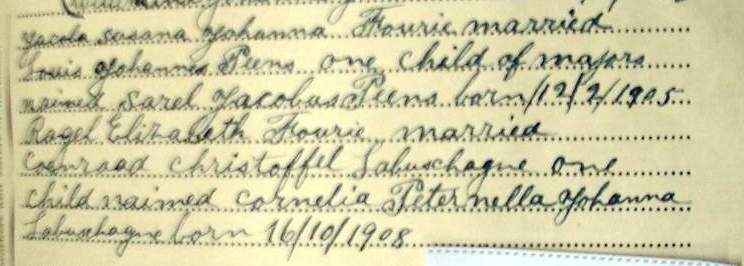 Jacoba Susana Johanna Fourie married
Louis Johannes Peens one child of majors
naimed Sarel Jacobus Peens born/12/2/1905
Ragel Elizabeth Fourie married
Coenraad Christoffel Labuschagne one
child naimed Cornelia Peternella Johanna
Labuschagne born 16/10/1908